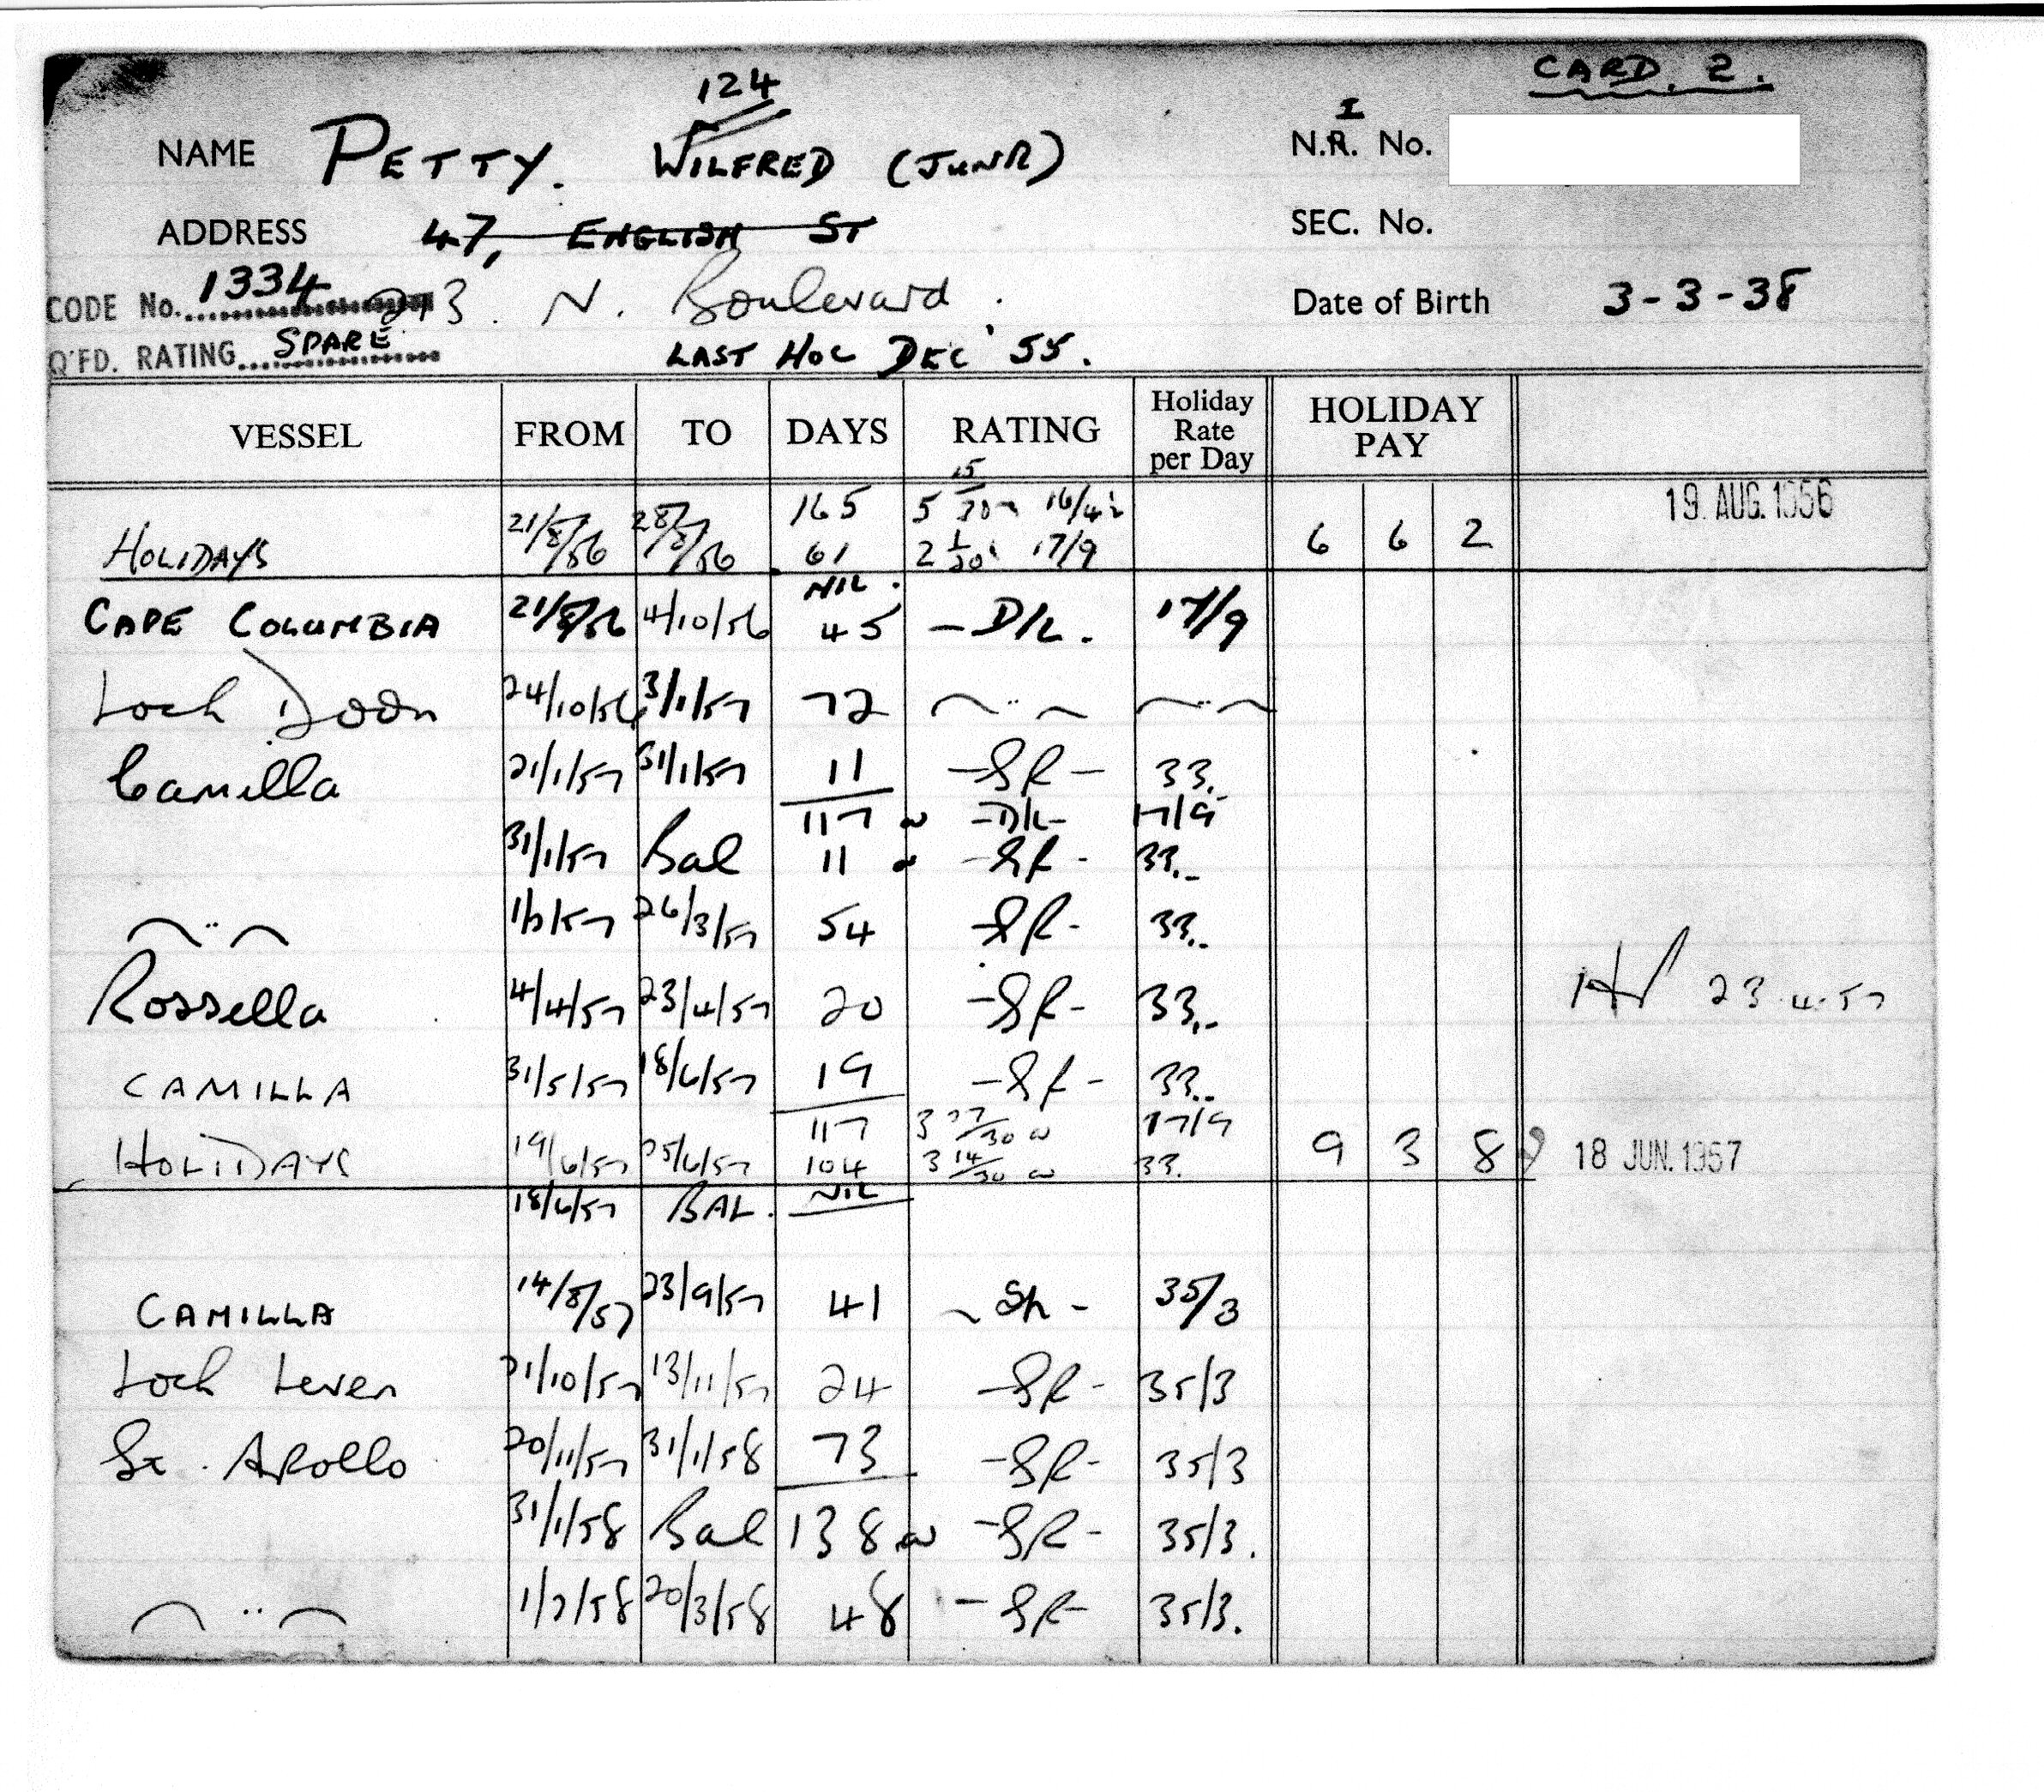 CARD. 2.
124
NAME PETTY. WILFRED (JUNR) N.I. No.
ADDRESS 47, ENGLISH ST SEC. No.
CODE No. 1334 N. Boulevard. Date of Birth 3-3-38
Q'FD. RATING SPARE LAST HOL DEC '55.
VESSEL FROM TO DAYS RATING Holiday Rate per Day HOLIDAY PAY
165 5 15/30 16/4½ 19. AUG. 1956
HOLIDAYS 21/8/56 28/8/56 61 2 1/30 17/9 6 6 2
NIL.
CAPE COLUMBIA 21/8/56 4/10/56 45 -D/L. 17/9
Loch Doon 24/10/56 3/1/57 72 " "
Camilla 21/1/57 31/1/57 11 -SR- 33.
117 @ -D/L- 17/9
31/1/57 Bal 11 @ -SR- 33.-
" 1/2/57 26/3/57 54 -SR- 33.-
Rossella 4/4/57 23/4/57 20 -SR- 33.- 23.4.57
CAMILLA 31/5/57 18/6/57 19 -SR- 33.-
117 3 27/30 @ 17/9
HOLIDAYS 19/6/57 25/6/57 104 3 14/30 @ 33. 9 3 8 18 JUN. 1957
18/6/57 BAL. NIL
CAMILLA 14/8/57 23/9/57 41 - SR - 35/3
Loch Leven 21/10/57 13/11/57 24 -SR- 35/3
St. Apollo 20/11/57 31/1/58 73 -SR- 35/3
31/1/58 Bal 138 @ -SR- 35/3.
" 1/2/58 20/3/58 48 -SR- 35/3.